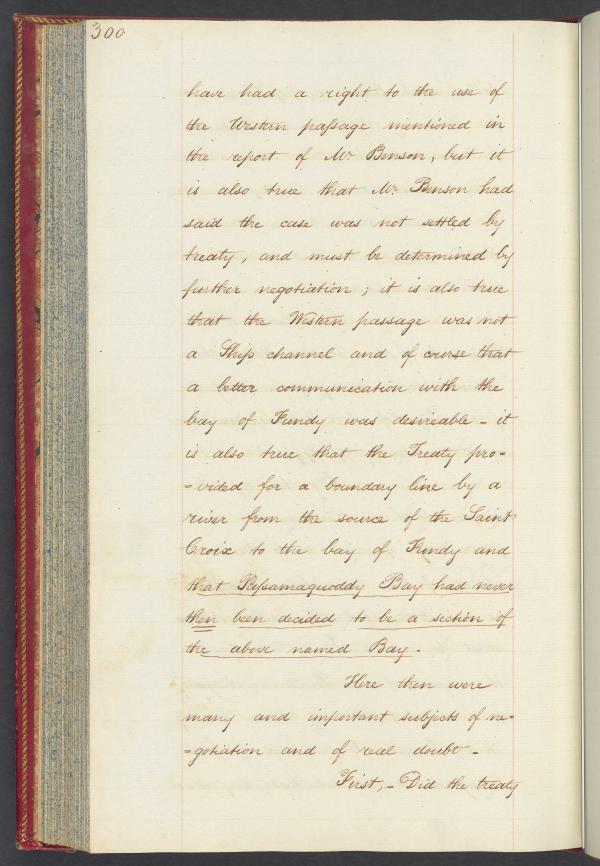 300
have had a right to the use of
the Western passage mentioned in
the report of Mr. Benson, but it
is also true that Mr. Benson had
said the case was not settled by
treaty, and must be determined by
further negotiation; it is also true
that the Western passage was not
a Ship channel and of course that
a better communication with the
bay of Fundy was desireable - it
is also true that the Treaty pro=
=vided for a boundary line by a
river from the source of the Saint
Croix to the bay of Fundy and
that Passamaquoddy Bay had never
then been decided to be a section of
the above named Bay.
Here then were
many and important subjects of ne=
=gotiation and of real doubt -
First, - Did the treaty